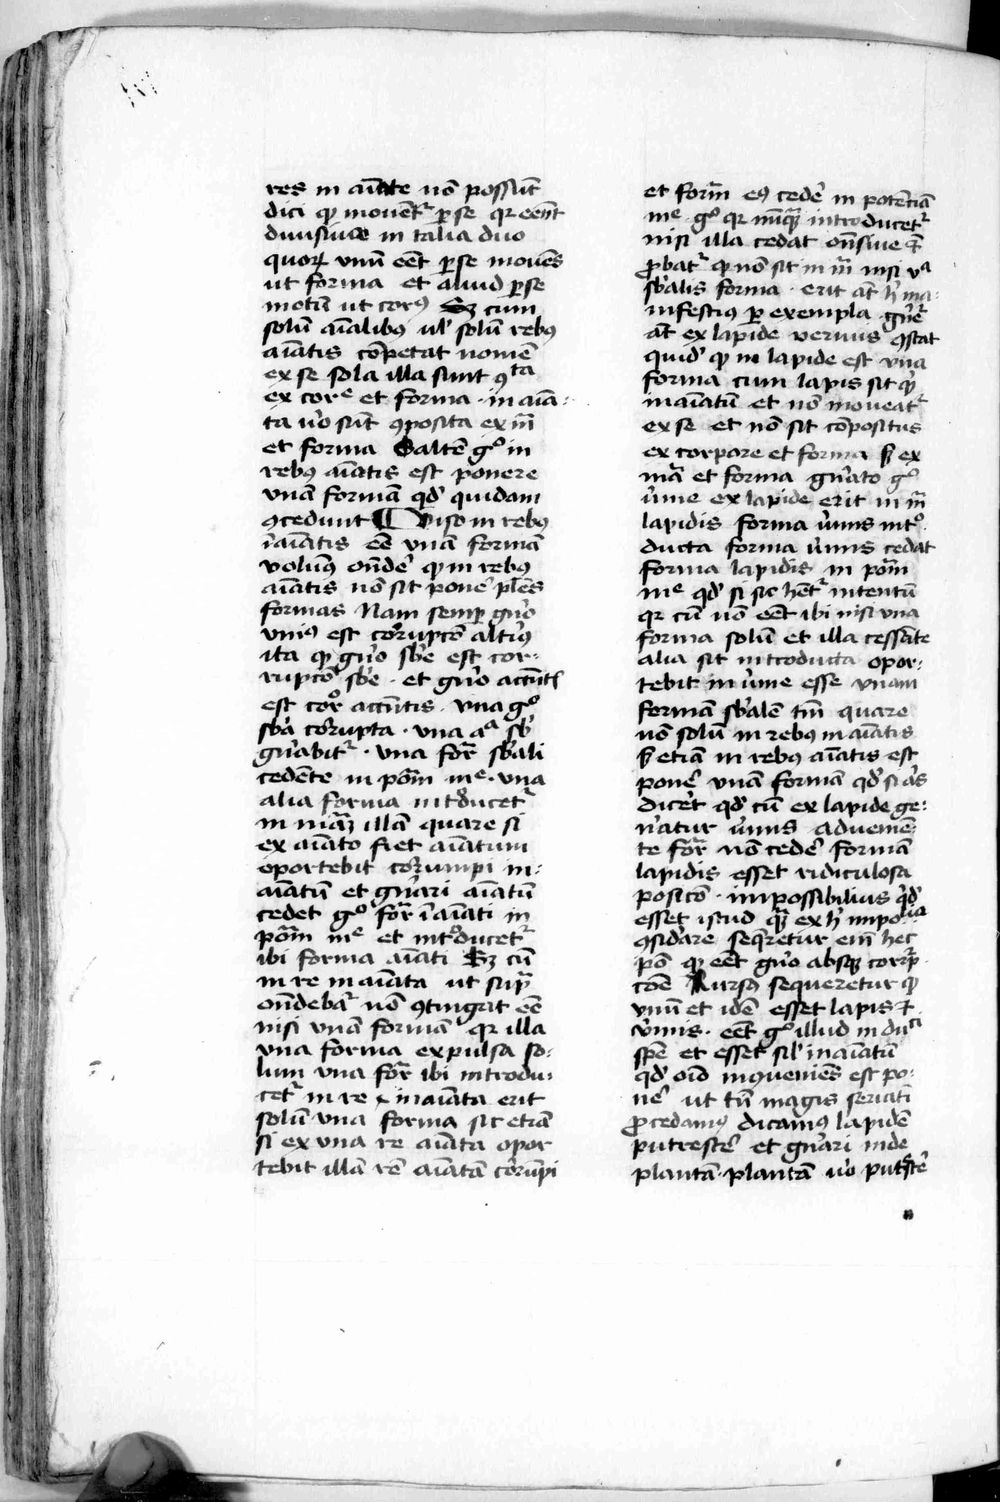 res in aīate nō possūt
dici qꝫ mouent᷑ ꝑ se qr eēnt
diuisiue in talia duo
quoꝝ vnū eēt ꝑ se mouēs
ut forma et aliud ꝑ se
motū ut corꝰ Sꝫ cum
solū aīalibꝰ ul' solū rebꝰ
aīatis cōpetat nomē
ex se sola illa sunt ꝯta
ex core et forma · in aīa-
ta u̓o sūt ꝯposita ex m̄
et forma Saltē gͦ in
rebꝰ aīatis est ponere
vnā formā qd̓ quidam
ꝯcedunt ¶ Viso in rebꝰ
īaīatis eē vnā formā
volumꝰ ondē̓ qꝫ in rebꝰ
aīatis nō sit pone̓ pl̓es
formas Nam semꝑ gn̓o
vniꝰ est corrupcō altiꝰ
ita qꝫ gn̓o sb̓e est cor-
rupcō sb̓e · et gn̓o accn̄tꝭ
est corͦ accn̄tis · vna gͦ
sb̓a corrupta · vna aᵃ sb̓
gn̓abit᷑ · vna for̄ sb̓ali
cedēte in pōm mᵉ · vna
alia forma introducet᷑
in māꝫ illā quare si
ex aīato fiet aīatum
oportebit corumpi in-
aīatū et gn̓ari aīatū
cedet gͦ for̄ īaīati in
pōm mᵉ et introducet᷑
ibi forma aīati Sꝫ cū
in re inaīata ut supᷓ
ondebat᷑ nō ꝯtingat eē
nisi vnā formā qr illa
vna forma expulsa so-
lum vna for̄ ibi introdu-
cet᷑ in re inaīata erit
solū vna forma sic etiā
si ex vna re aīata opor
tebit illā rē aīatā corūpi
et formā eꝰ cede̓ in potētiā
mᵉ · gͦ qr nūqᷓ introducet᷑
nisi illa cedat onsiue
ꝓbat᷑ qꝫ nō sit in m̄ nisi vᵃ
sb̓alis forma · erit āt h̓ ma-
nifestiꝰ ꝑ exempla
āt ex lapide vermis ꝯstat
quid̓ qꝫ in lapide est vna
forma cum lapis sit qd̓
inaīatū et nō moueat᷑
ex se et nō sit cōpositus
ex corpore et forma s̓ ex
mā et forma gn̓ato gͦ
v̓me ex lapide erit in m̄
lapidis forma v̓mis int̓o-
ducta forma v̓mis cedat
forma lapidis in pōm
mᵉ qd̓ si sic hēt᷑ intentū
qr cū nō eēt ibi nisi vna
forma solū et illa cessāte
alia sit introducta opor-
tebit in v̓me esse vnam
formā sb̓alē tm̄ quare
nō solū in rebꝰ inaīatis
s̓ etiā in rebꝰ aīatis est
pone̓ vnā formā qd̓ si q̓s
dicet̓ qd̓ cū ex lapide ge-
n̓atur v̓mis aduenīē-
te for̄ nō cede̓ formā
lapidis esset ridiculosa
positō · impossibilius qd̓
esset istud qᷓ ex h̓ impoˡⁱᵃ
ꝯsid̓are seq̓retur em̄ hec
pō qꝫ eēt gn̓o absqꝫ corrp̄-
tōe Rursꝰ sequeretur qꝫ
vnū et idē esset lapis et
v̓mis · eēt gͦ illud in duᶜⁱ
spē et esset sil̓ inaīatū
qd̓ oīo inꝯueniēs est po-
ne̓ ut tū magis seriati
ꝓcedamꝰ dicamꝰ lapidē
putresce̓ et gn̓ari inde
plantā · plantā u̓o putresce̓